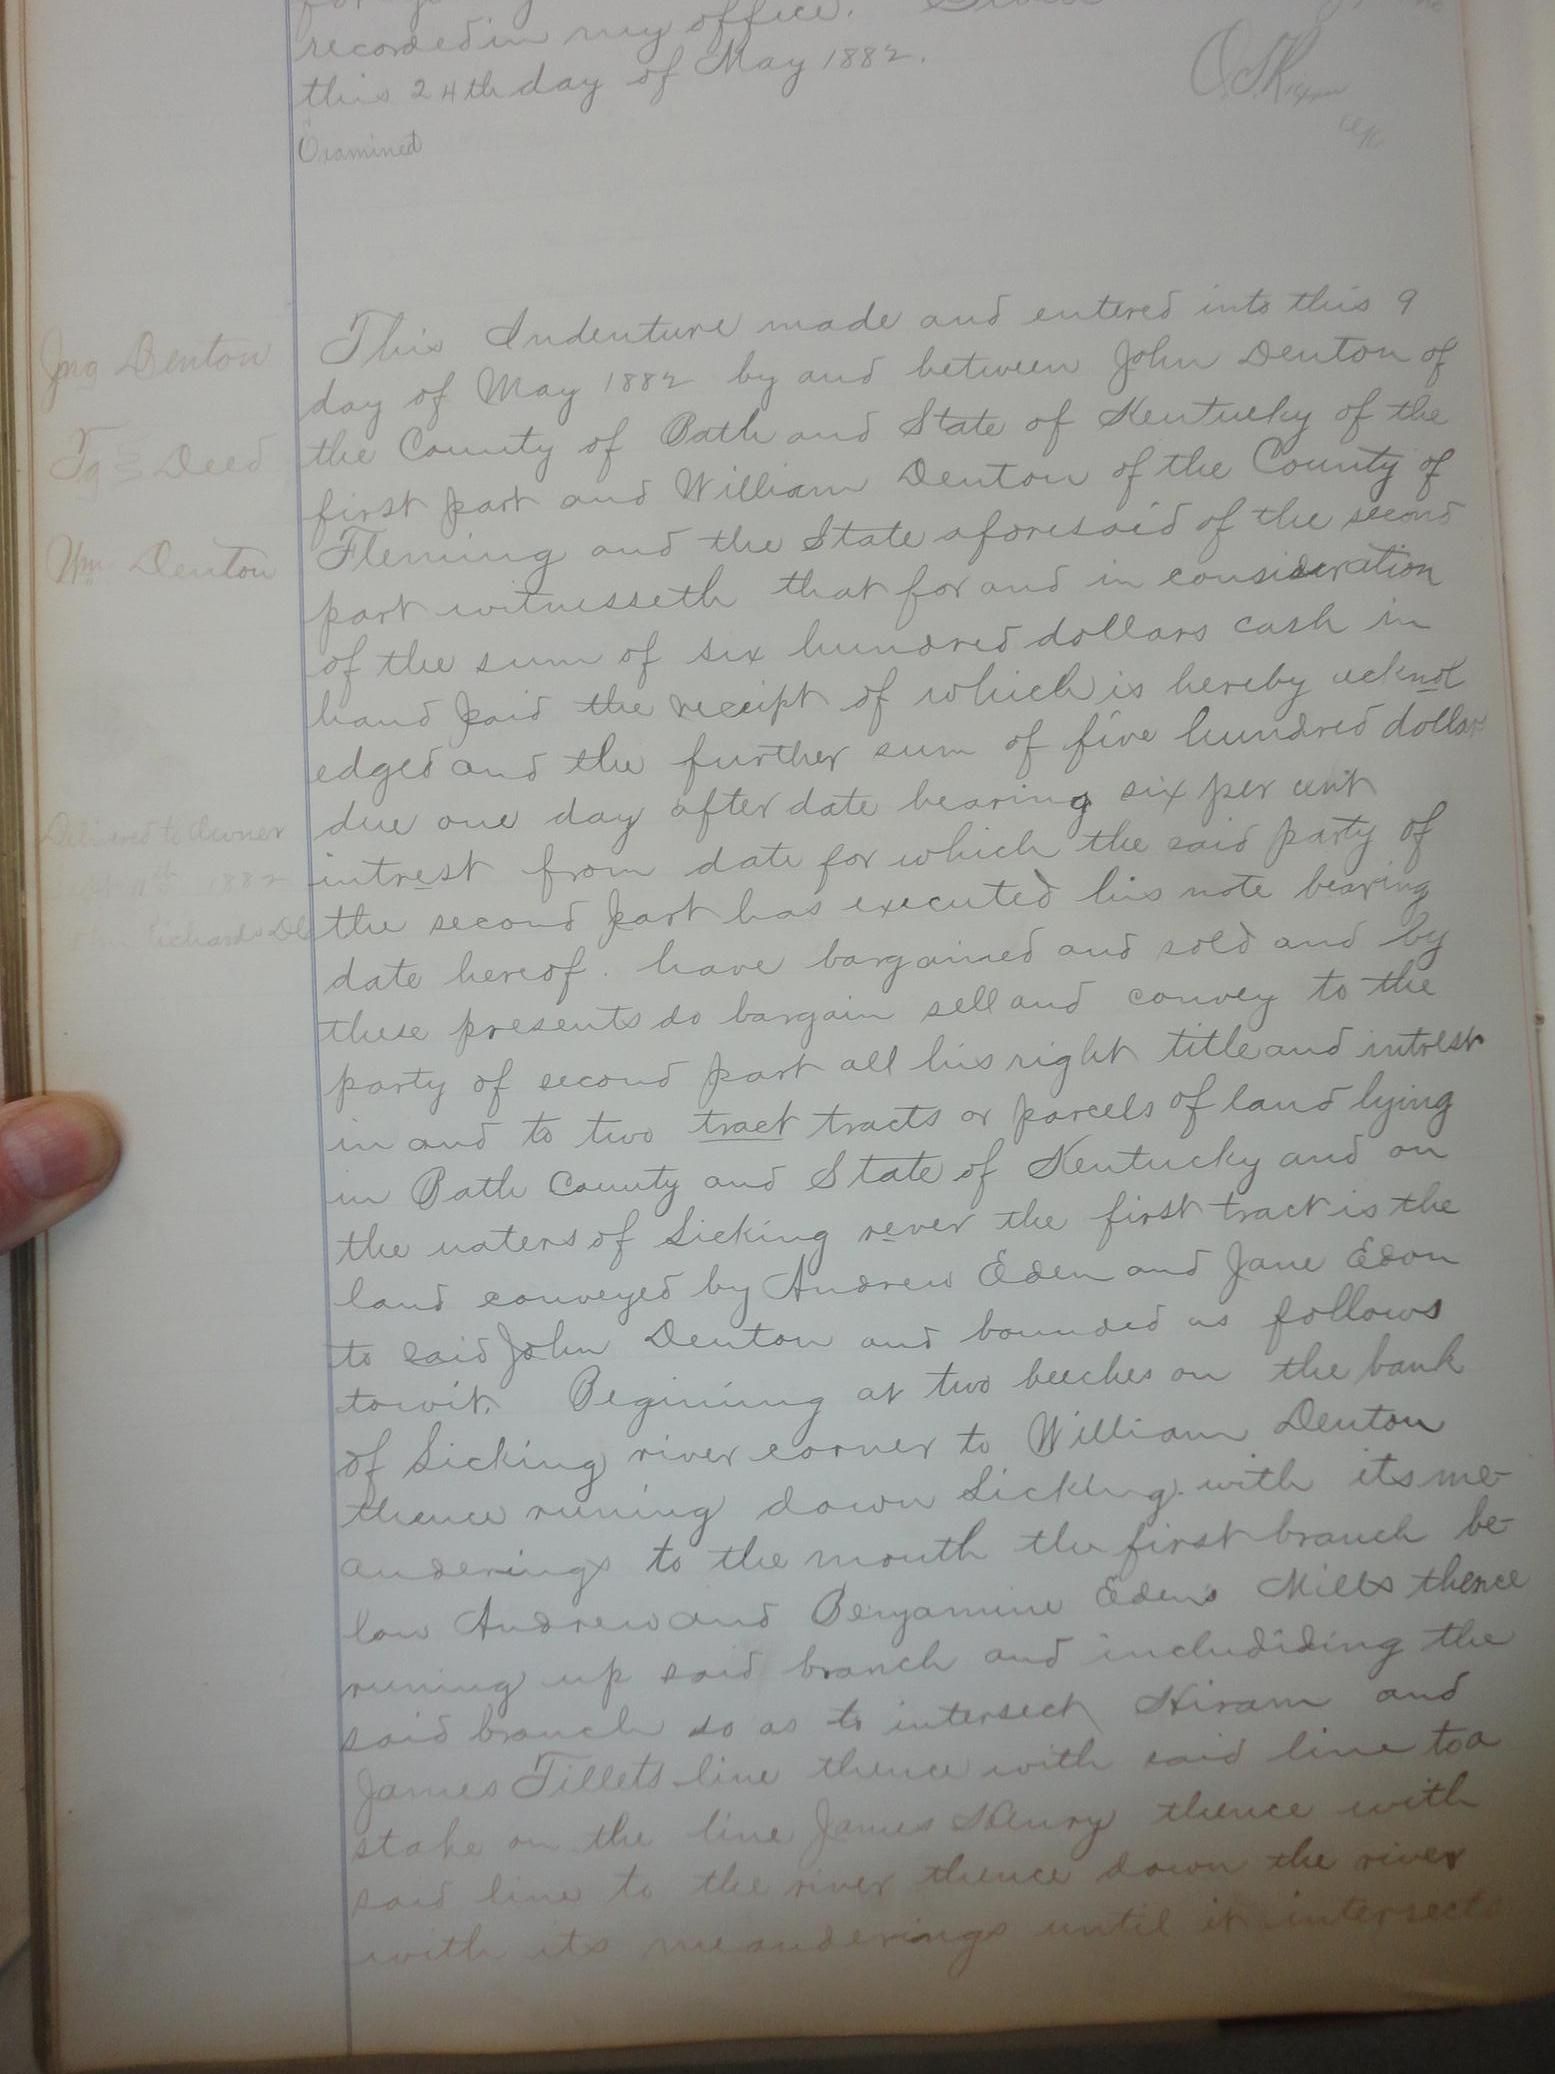 recorded in my office.
this 24th day of May 1882.
Examined
Jno Denton
To Deed
Wm Denton
Delivered to Owner
11th 1882
Richards DC
This Indenture made and entered into this 9
day of May 1882 by and between John Denton of
the County of Bath and State of Kentucky of the
first part and William Denton of the County of
Fleming and the State aforesaid of the second
part witnesseth that for and in consideration
of the sum of six hundred dollars cash in
hand paid the receipt of which is hereby acknol
edged and the further sum of five hundred dollars
due one day after date bearing six per cent
intrest from date for which the said party of
the second part has executed his note bearing
date hereof. have bargained and sold and by
these presents do bargain sell and convey to the
party of second part all his right title and intrest
in and to two tract tracts or parcels of land lying
in Bath County and State of Kentucky and on
the waters of Licking rever the first tract is the
land conveyed by Andrew Eden and Jane Edon
to said John Denton and bounded as follows
towit. Begining at two beeches on the bank
of Licking river corner to William Denton
thence runing down Licking with its me-
anderings to the mouth the first branch be-
low Andrew and Benjamine Eden's Mills thence
runing up said branch and includiding the
said branch so as to intersect Hiram and
James Tillets line thence with said line to a
stake on the line James Henry thence with
said line to the river thence down the river
with its meanderings until it intersects